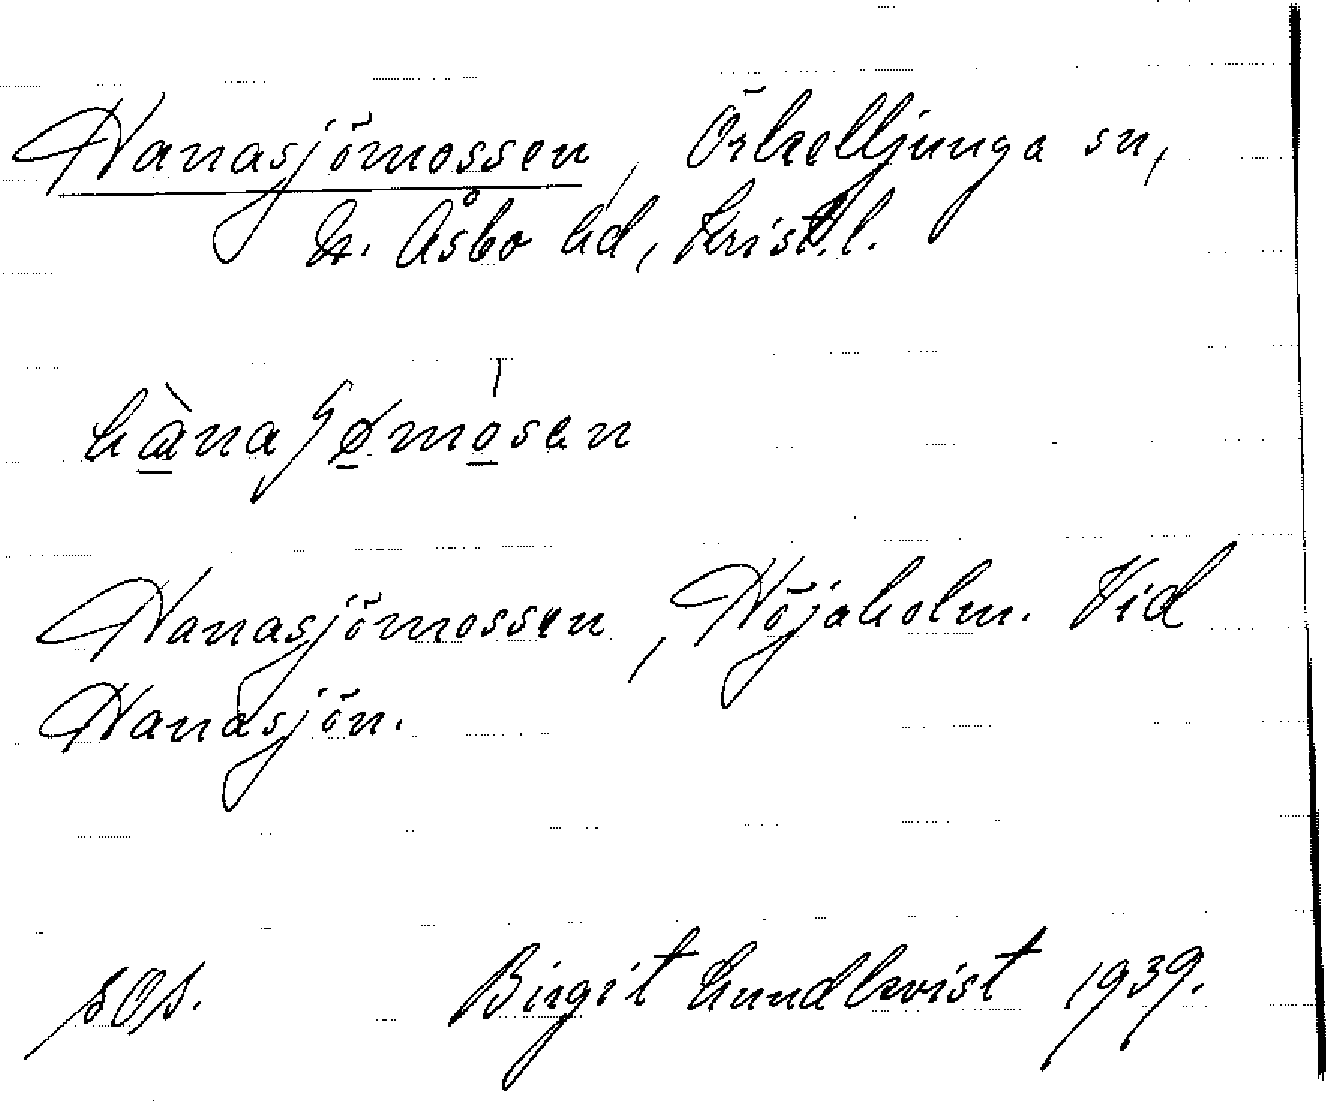 Hanasjömossen, Örkelljunga sn,
N. Åsbo hd, Krist. l.
hànaʃømósen
Hanasjömossen, Höjaholm. Vid
Hanasjön.
Birgit Lundkvist 1939.